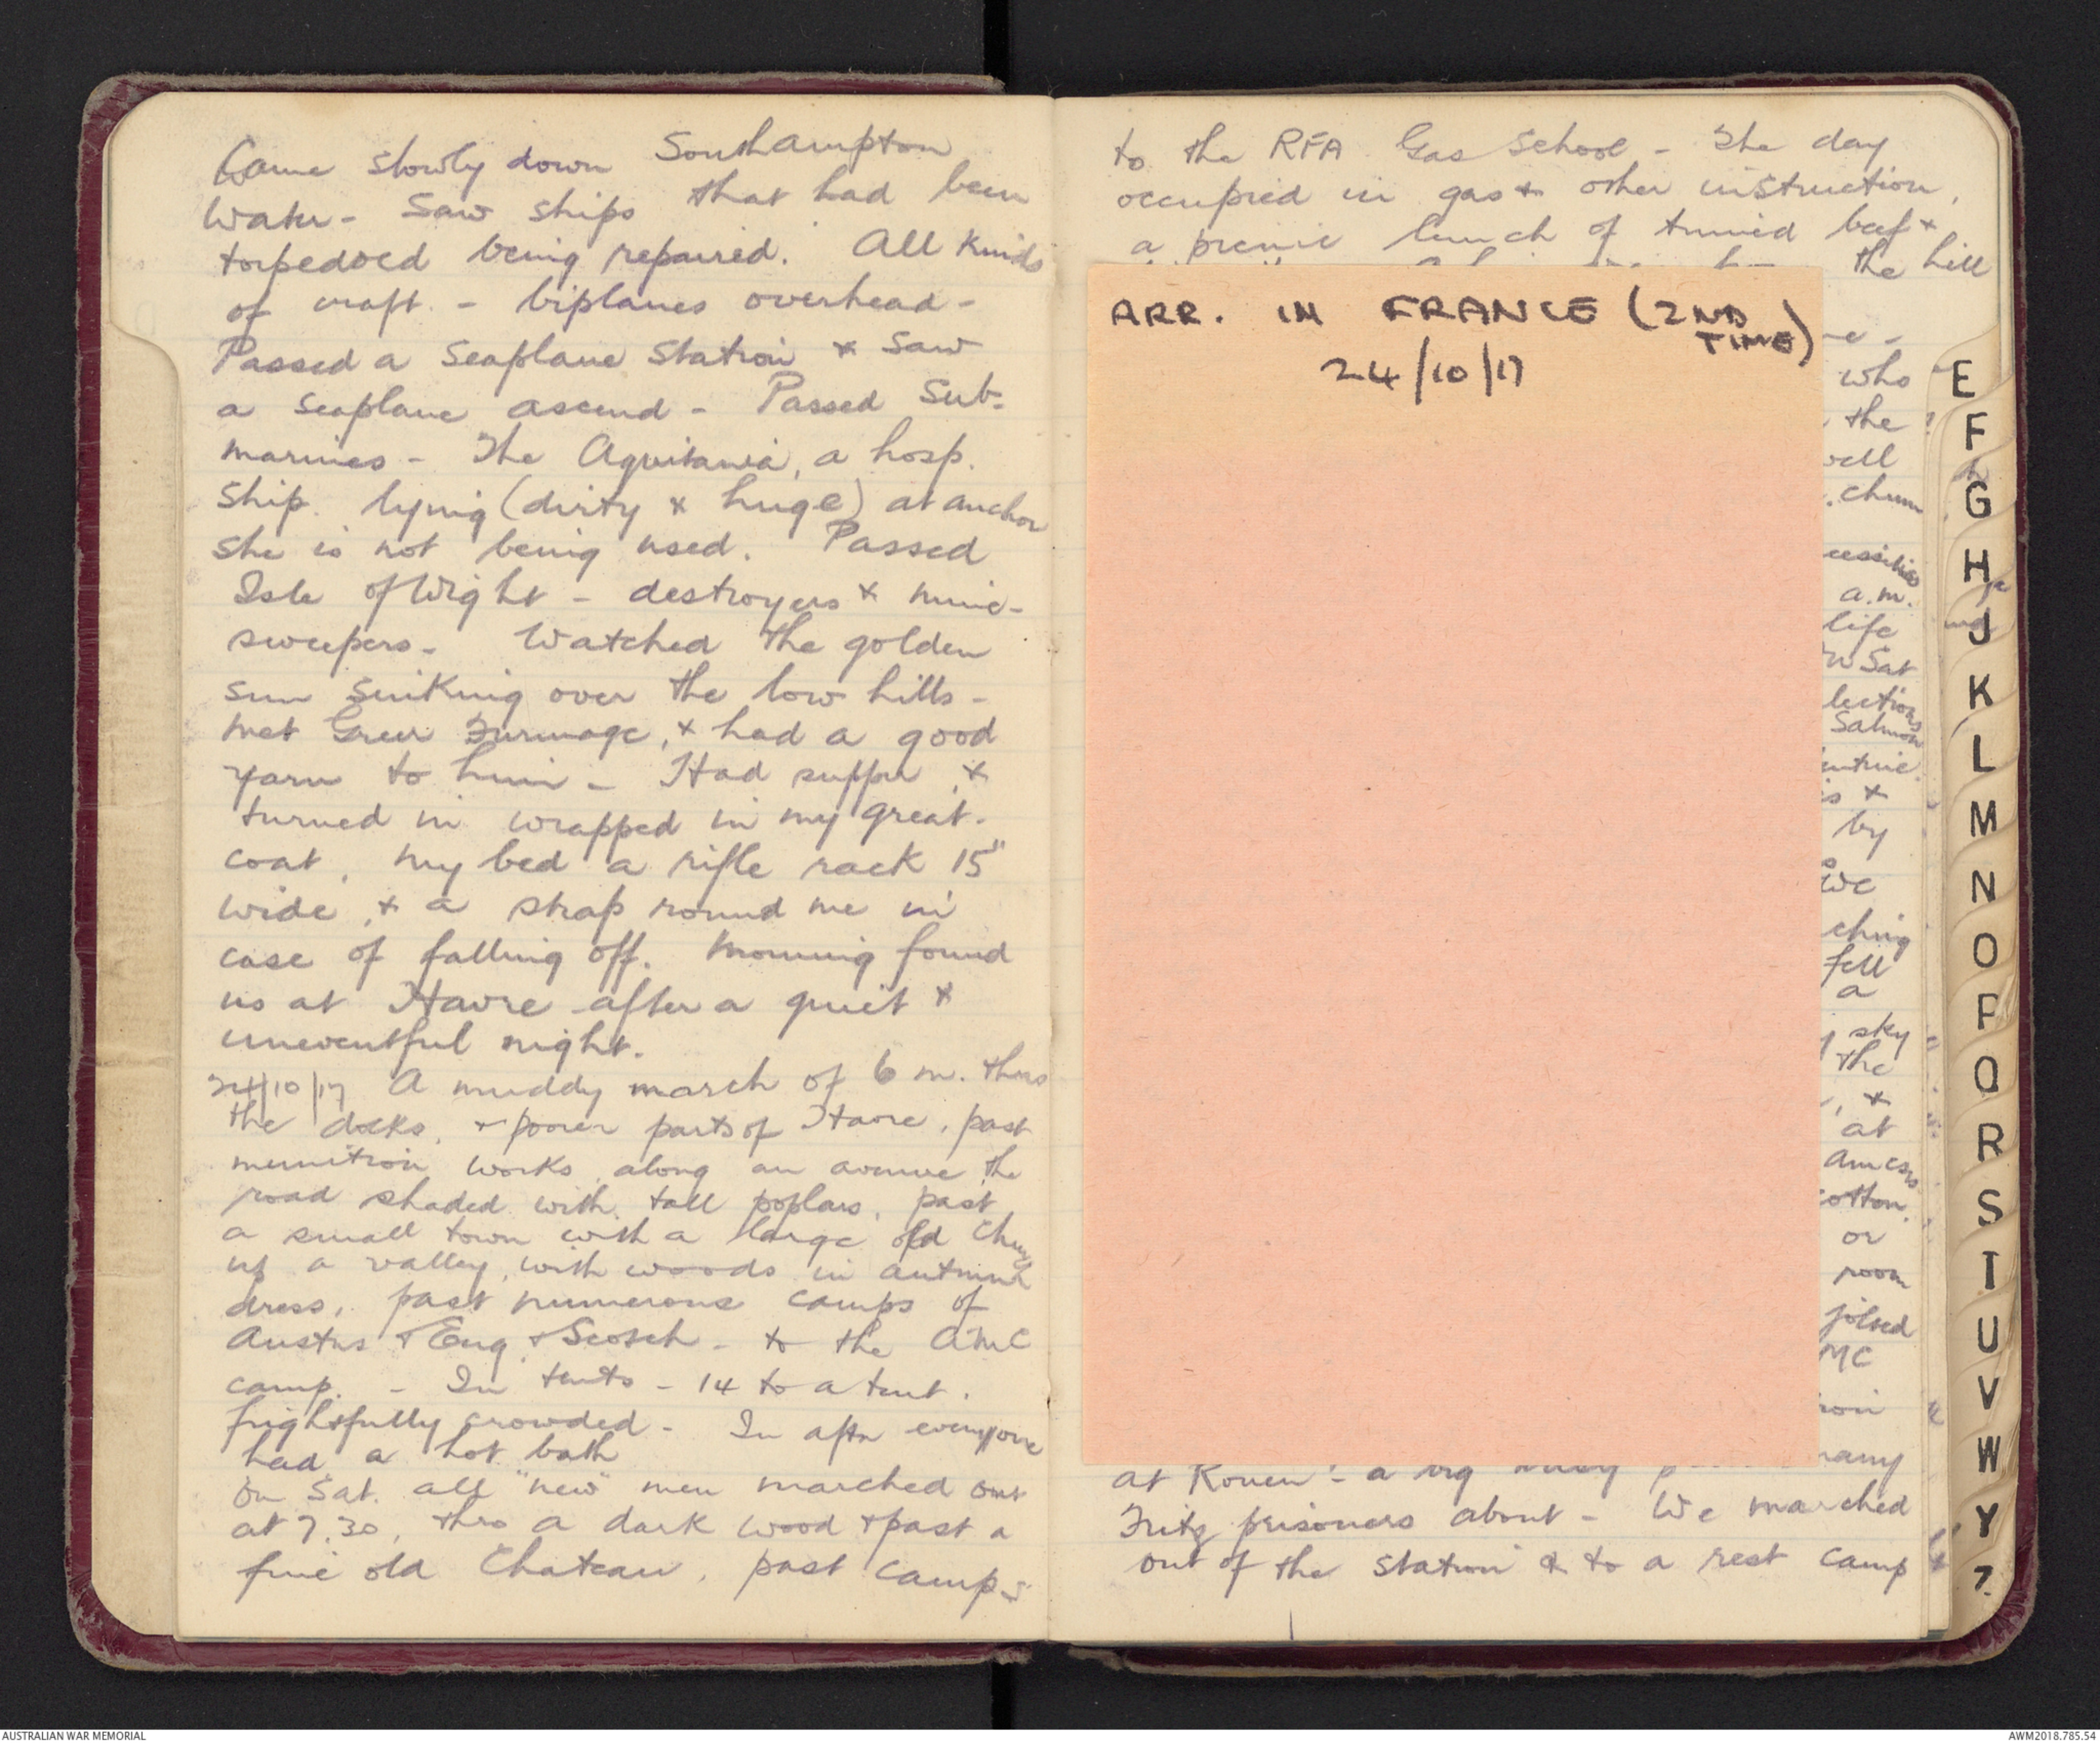 Came slowly down Southampton
Water - Saw ships that had been
torpedoed being repaired. All kinds
of craft. - biplanes overhead -
Passed a Seaplane Station & saw
a seaplane ascend - Passed Sub-
marines - The Aquitania, a hosp.
ship. lying (dirty & huge) at anchor
She is not being used. Passed
Isle of Wight - destroyers & mine-
sweepers. Watched the golden
sun sinking over the low hills -
met & had a good
yarn to him - Had supper, &
turned in wrapped in my great-
coat, my bed a rifle rack 15"
wide, & a strap round me in
case of falling off. Morning found
us at Havre after a quiet &
uneventful night.
24/10/17 A muddy march of 6 m. thro
the docks, & poorer parts of Havre, past
munition works, along an avenue, the
road shaded with tall poplars, past
a small town with a large old
up a valley, with woods in autumn
dress, past numerous camps of
Austns & Eng. & Scotch - to the AMC
camp. - In tents - 14 to a tent.
frightfully crowded - In aftn everyone
had a hot bath
On Sat. all "new" men marched out
at 7.30, thro a dark wood & past a
fine old Chateau, past camps
to the RFA Gas School - The day
occupied in gas & other instruction,
a picnic lunch of tinned beef &
the hill
ARR. IN FRANCE (2ND
TIME)
24/10/17
who
the
chum
a.m.
life
Sat
Salmon
&
by
we
fell
a
sky
the
, &
at
or
room
at Rouen - a big busy
Fritz prisoners about - We marched
out of the station & to a rest camp
E
F
G
H
J
K
L
M
N
O
P
Q
R
S
T
U
V
W
Y
Z
AUSTRALIAN WAR MEMORIAL
AWM2018.785.54